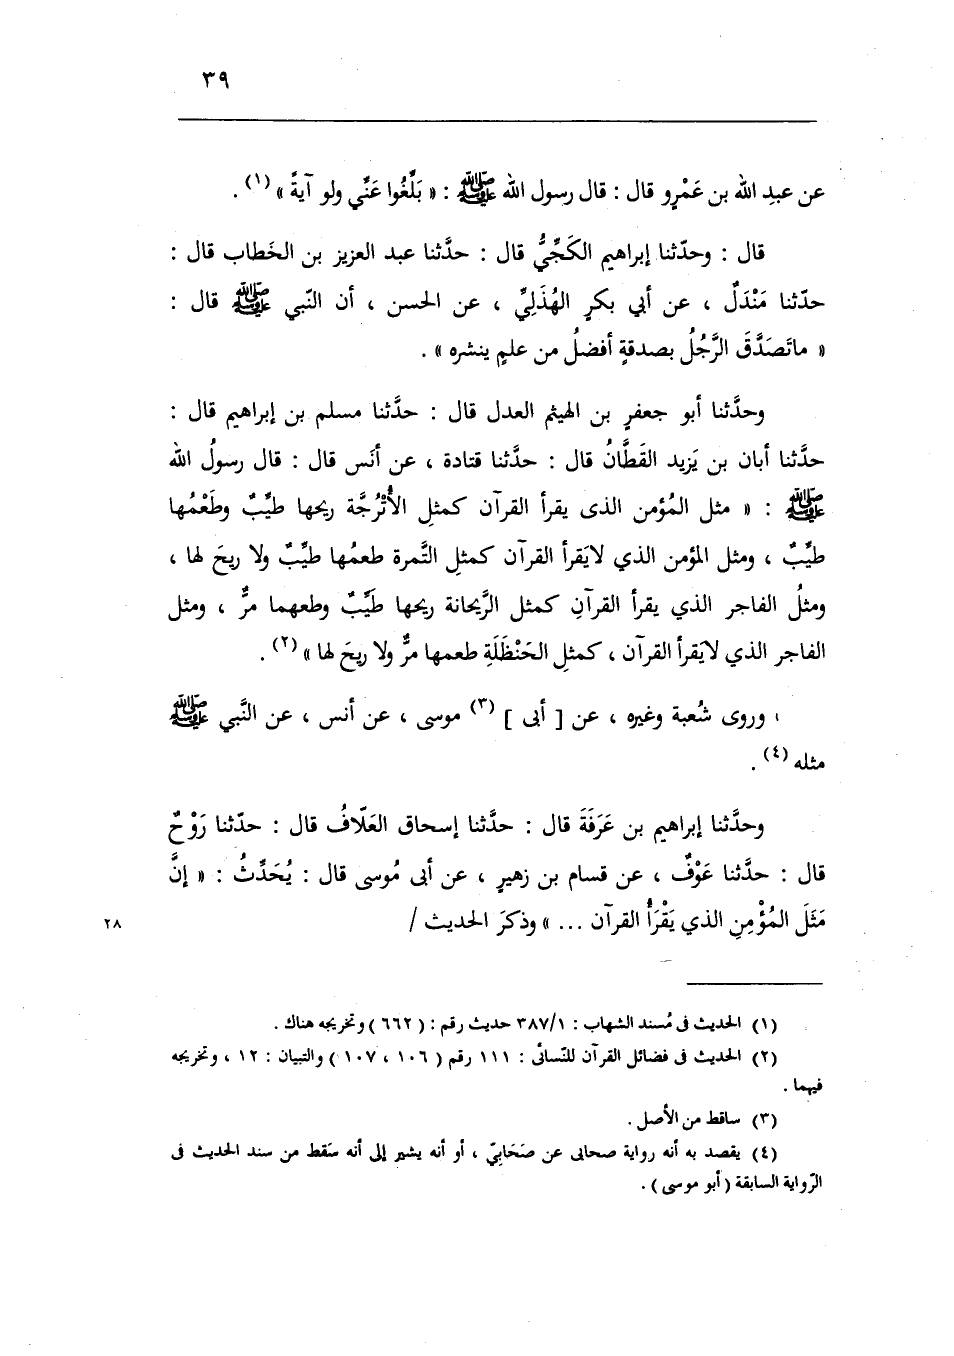 ٣٩
عن عبدِ الله بن عَمْرٍو قال : قال رسول الله ﷺ : « بَلِّغُوا عَنِّي ولو آيةً » (١) .
قال : وحدّثنا إبراهيم الكَجِّيُّ قال : حدَّثنا عبد العزيز بن الخَطاب قال :
حدّثنا مَنْدَلٌ ، عن أبي بكرٍ الهُذَلِيِّ ، عن الحسن ، أن النّبي ﷺ قال :
« ماتَصَدَّقَ الرَّجُلُ بصدقةٍ أفضلُ من علمٍ ينشره » .
وحدَّثنا أبو جعفرٍ بن الهيثم العدل قال : حدَّثنا مسلم بن إبراهيم قال :
حدَّثنا أبان بن يَزيد القَطَّانُ قال : حدَّثنا قتادة ، عن أنَس قال : قال رسولُ الله
ﷺ : « مثل المُؤمن الذى يقرأ القرآن كمثلِ الأُتْرُجَّة ريحها طيِّبٌ وطَعْمُها
طيِّبٌ ، ومثل المؤمن الذي لايَقرأ القرآن كمثلِ التَّمرة طعمُها طيِّبٌ ولا ريحَ لها ،
ومثلُ الفاجر الذي يقرأ القرآنِ كمثل الرَّيحانة ريحها طَيِّبٌ وطعهما مرٌّ ، ومثل
الفاجر الذي لايَقرأ القرآن ، كمثلِ الحَنْظَلَةِ طعمها مرٌّ ولا ريحَ لها » (٢) .
وروى شُعبة وغيره ، عن [ أبى ] (٣) موسى ، عن أنس ، عن النَّبي ﷺ
مثله (٤) .
وحدَّثنا إبراهيم بن عَرَفَةَ قال : حدَّثنا إسحاق العَلّافُ قال : حدّثنا رَوْحٌ
قال : حدَّثنا عَوْفٌ ، عن قسام بن زهيرٍ ، عن أبى مُوسى قال : يُحَدِّثُ : « إنَّ
مَثَلَ المُؤْمِنِ الذي يَقْرَأُ القرآن ... » وذكرَ الحديث /
٢٨
(١) الحديث فى مُسند الشهاب : ٣٨٧/١ حديث رقم : ( ٦٦٢ ) وتخريجه هناك .
(٢) الحديث فى فضائل القرآن للنّسائى : ١١١ رقم ( ١٠٦ ، ١٠٧ ) والتبيان : ١٢ ، وتخريجه
فيهما .
(٣) ساقط من الأصل .
(٤) يقصد به أنه رواية صحابى عن صَحَابِيّ ، أو أنه يشير إلى أنه سَقط من سند الحديث فى
الرّواية السابقة ( أبو موسى ) .